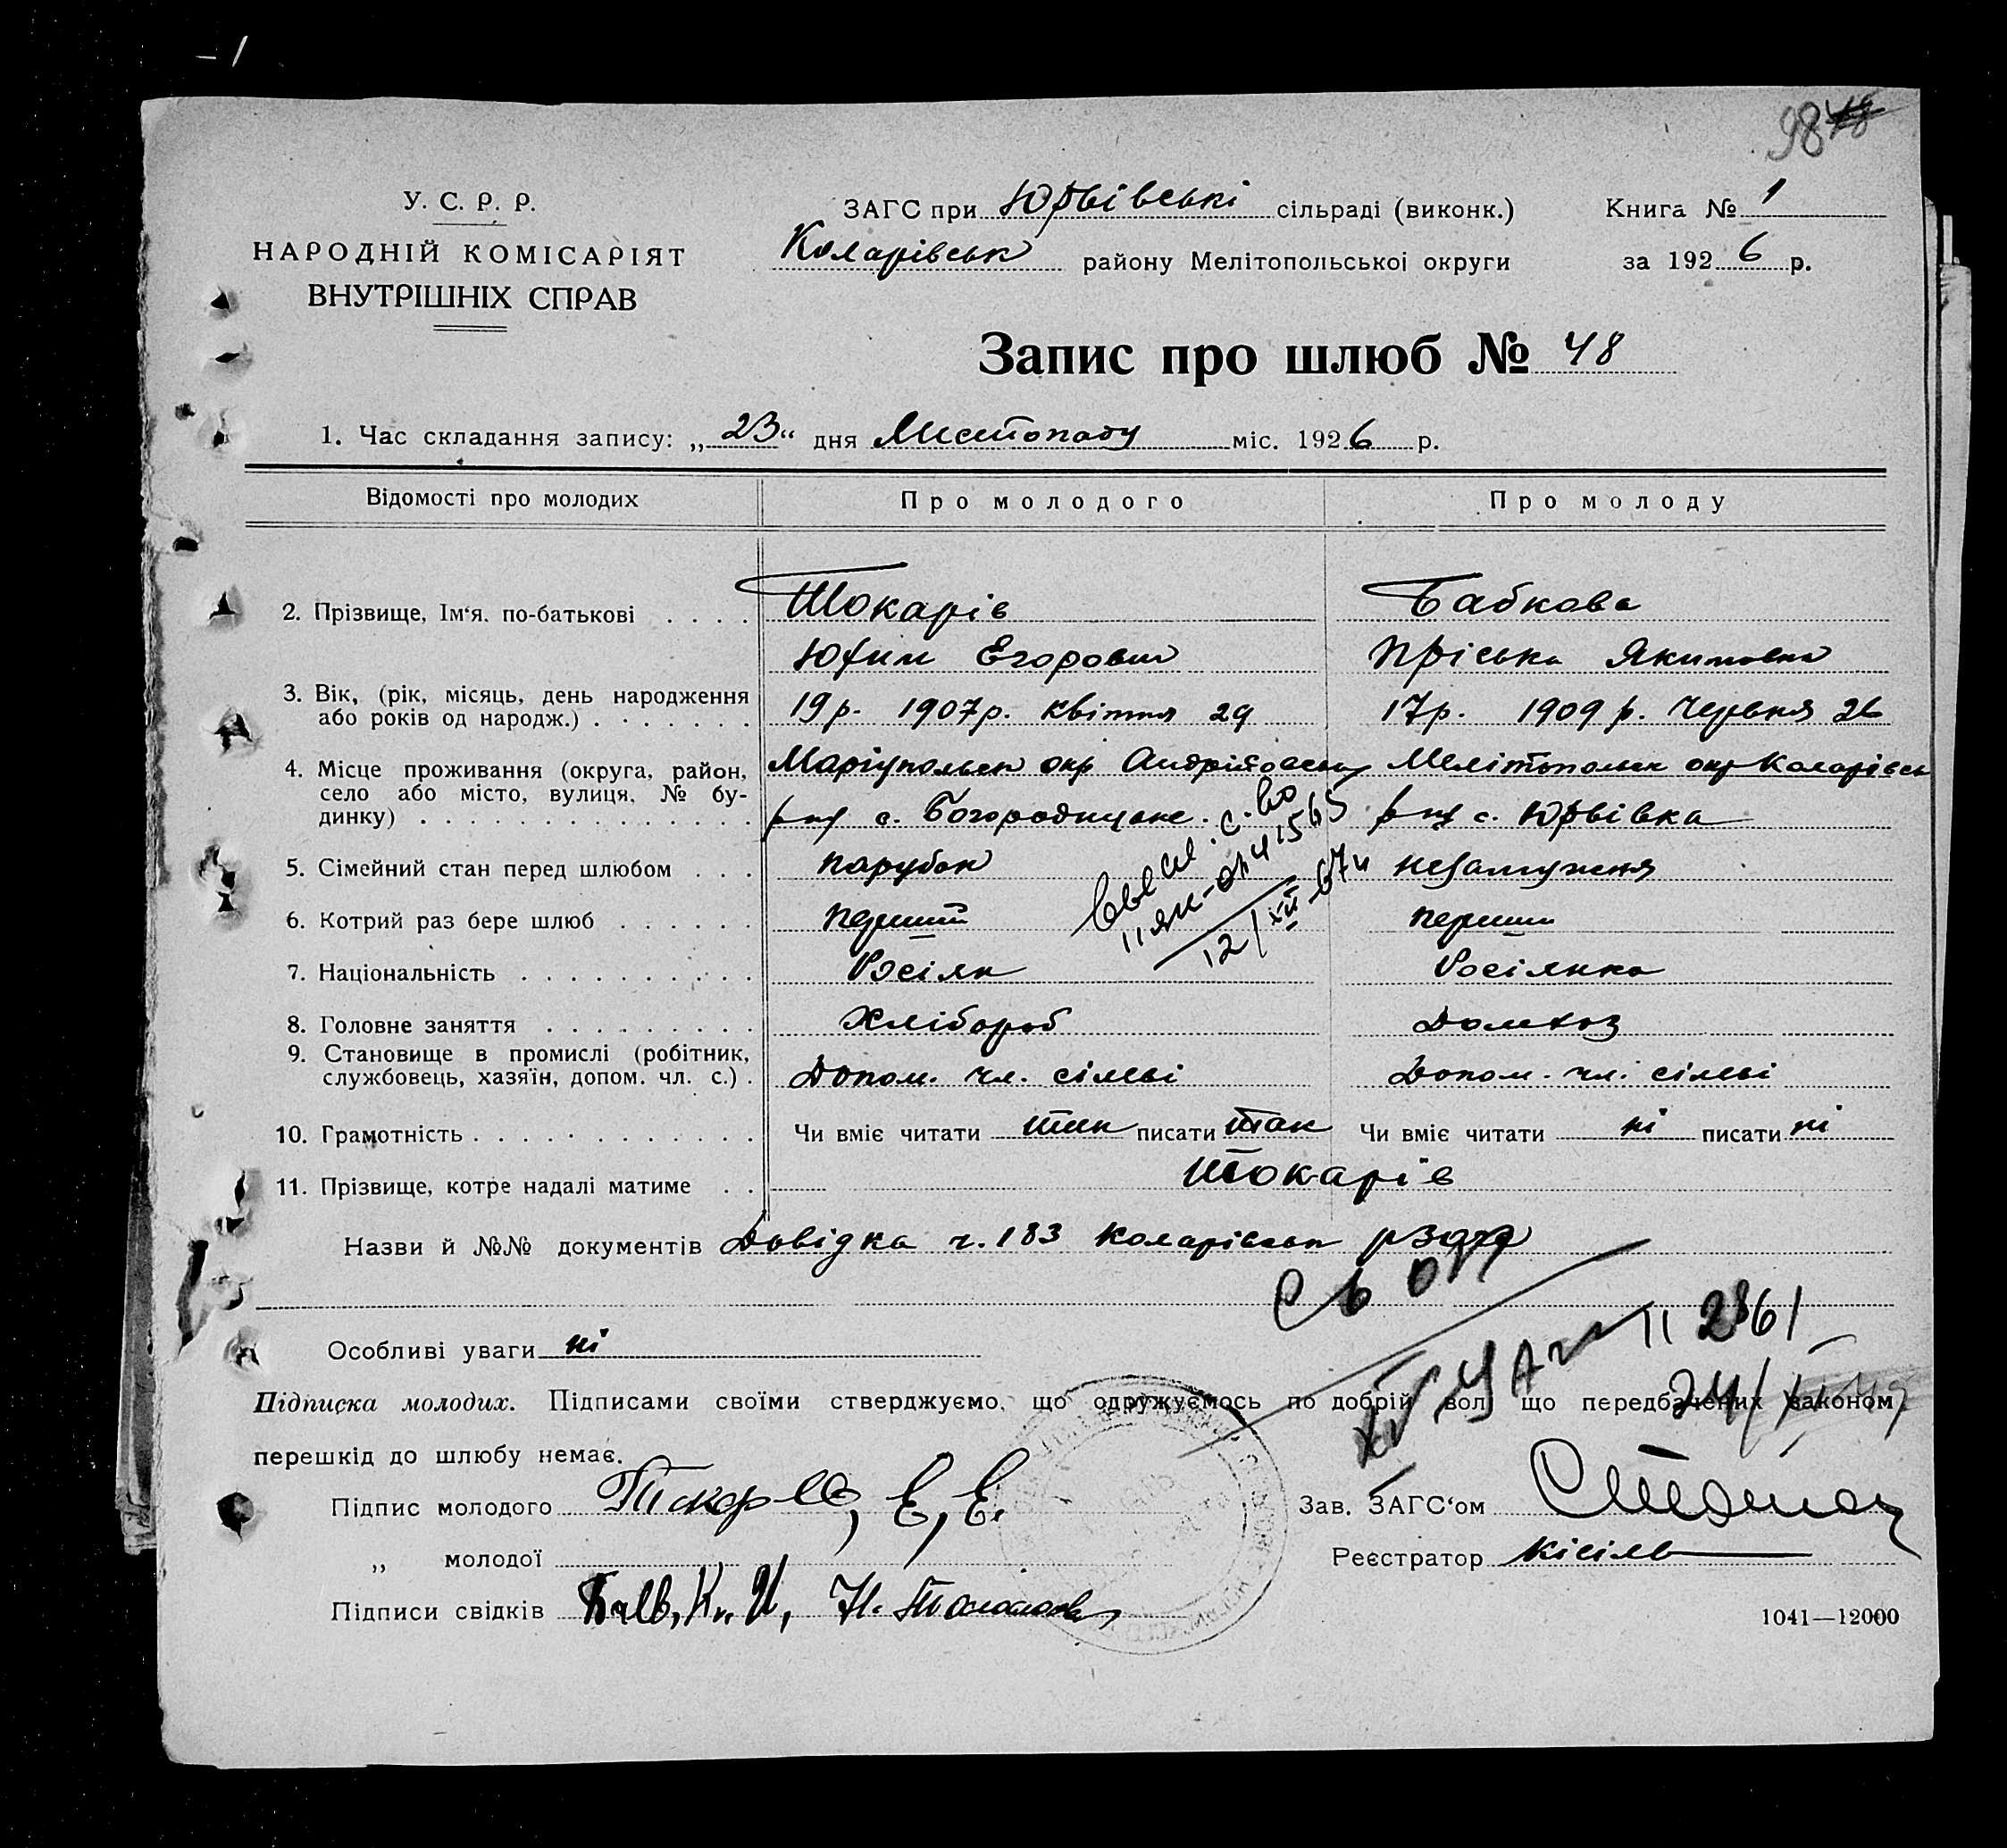 98 48
У. С. Р. Р.
НАРОДНІЙ КОМІСАРІЯТ
ВНУТРІШНІХ СПРАВ
ЗАГС при Юрьівські сільраді (виконк.)
Коларівськ району Мелітопольської округи
Книга № 1
за 1926 р.
Запис про шлюб № 48
1. Час складання запису: „23“ дня Листопаду міс. 1926 р.
Відомості про молодих Про молодого Про молоду
2. Прізвище, Ім'я, по-батькові Токарів Бабкова
Юхим Егорович Пріська Якимовна
3. Вік, (рік, місяць, день народження 19р. 1907р. квітня 29 17р. 1909 р. Червня 26
або років од народж.)
4. Місце проживання (округа, район, Маріупольськ окр Мелітопольськ окр Коларівськ
село або місто, вулиця, № бу- с. Богородицьке. с. Юрьівка
динку)
5. Сімейний стан перед шлюбом парубок незамужня
6. Котрий раз бере шлюб перший перший
7. Національність Росіян Росіянка
8. Головне заняття Хлібороб Домхоз
9. Становище в промислі (робітник, Допом. чл. сімьі Допом. чл. сімьі
службовець, хазяїн, допом. чл. с.)
10. Грамотність Чи вміє читати так писати так Чи вміє читати ні писати ні
11. Прізвище, котре надалі матиме Токарів
Назви й №№ документів Довідка ч. 183 Коларівськ
Особливі уваги ні
Підписка молодих. Підписами своїми стверджуємо, що одружуємось по добрій волі що передбачених законом
перешкід до шлюбу немає.
Підпис молодого Е, Е.
Зав. ЗАГС'ом
„ молодої
Реєстратор Кісіль
Підписи свідків
1041—12000